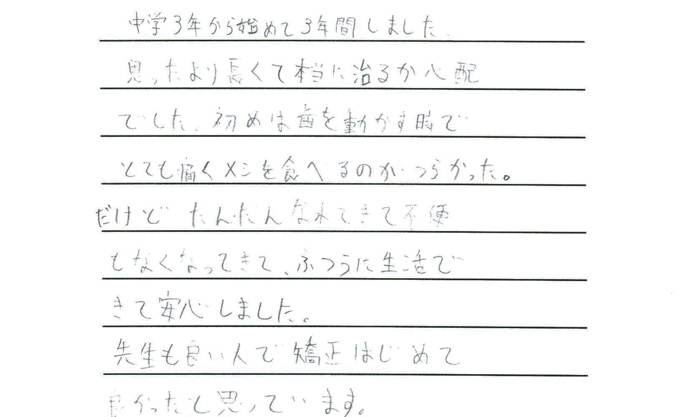 中学3年から始めて3年間しました。
思ったより長くて本当に治るか心配
でした。初めは歯を動かす時で
とても痛くメシを食べるのがつらかった。
だけど たんだんなれてきて不便
もなくなってきて、ふつうに生活で
きて安心しました。
先生も良い人で矯正はじめて
良かったと思っています。